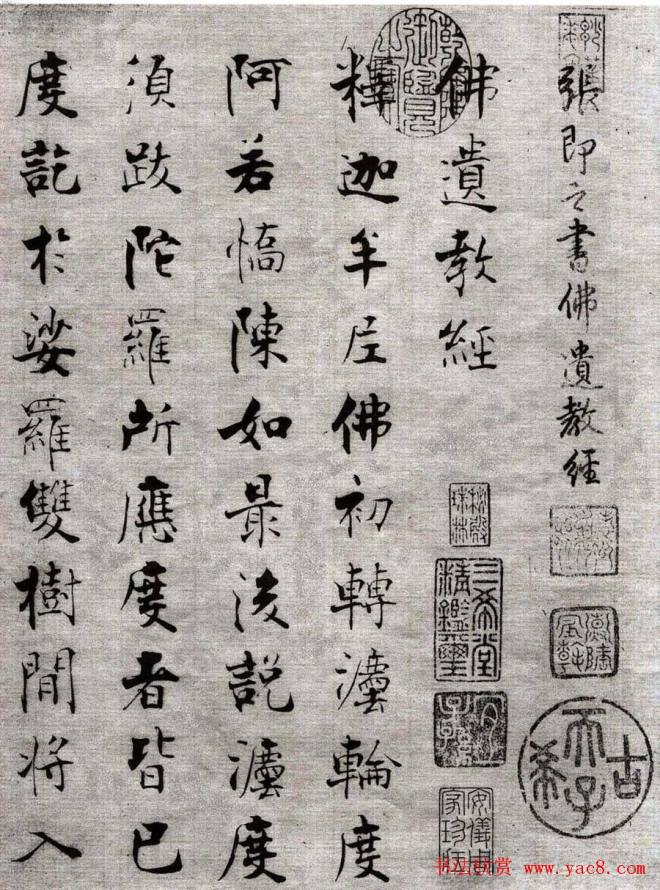 張即之書佛遺教經
佛遺教經
釋迦牟尼佛初轉灋輪度
阿若憍陳如最後說灋度
須跋陀羅所應度者皆已
度訖於娑羅雙樹間將入
乾隆御覽之寶
秘殿珠林
三希堂精鑑璽
宜子孫
古希天子
书法欣赏 www.yac8.com